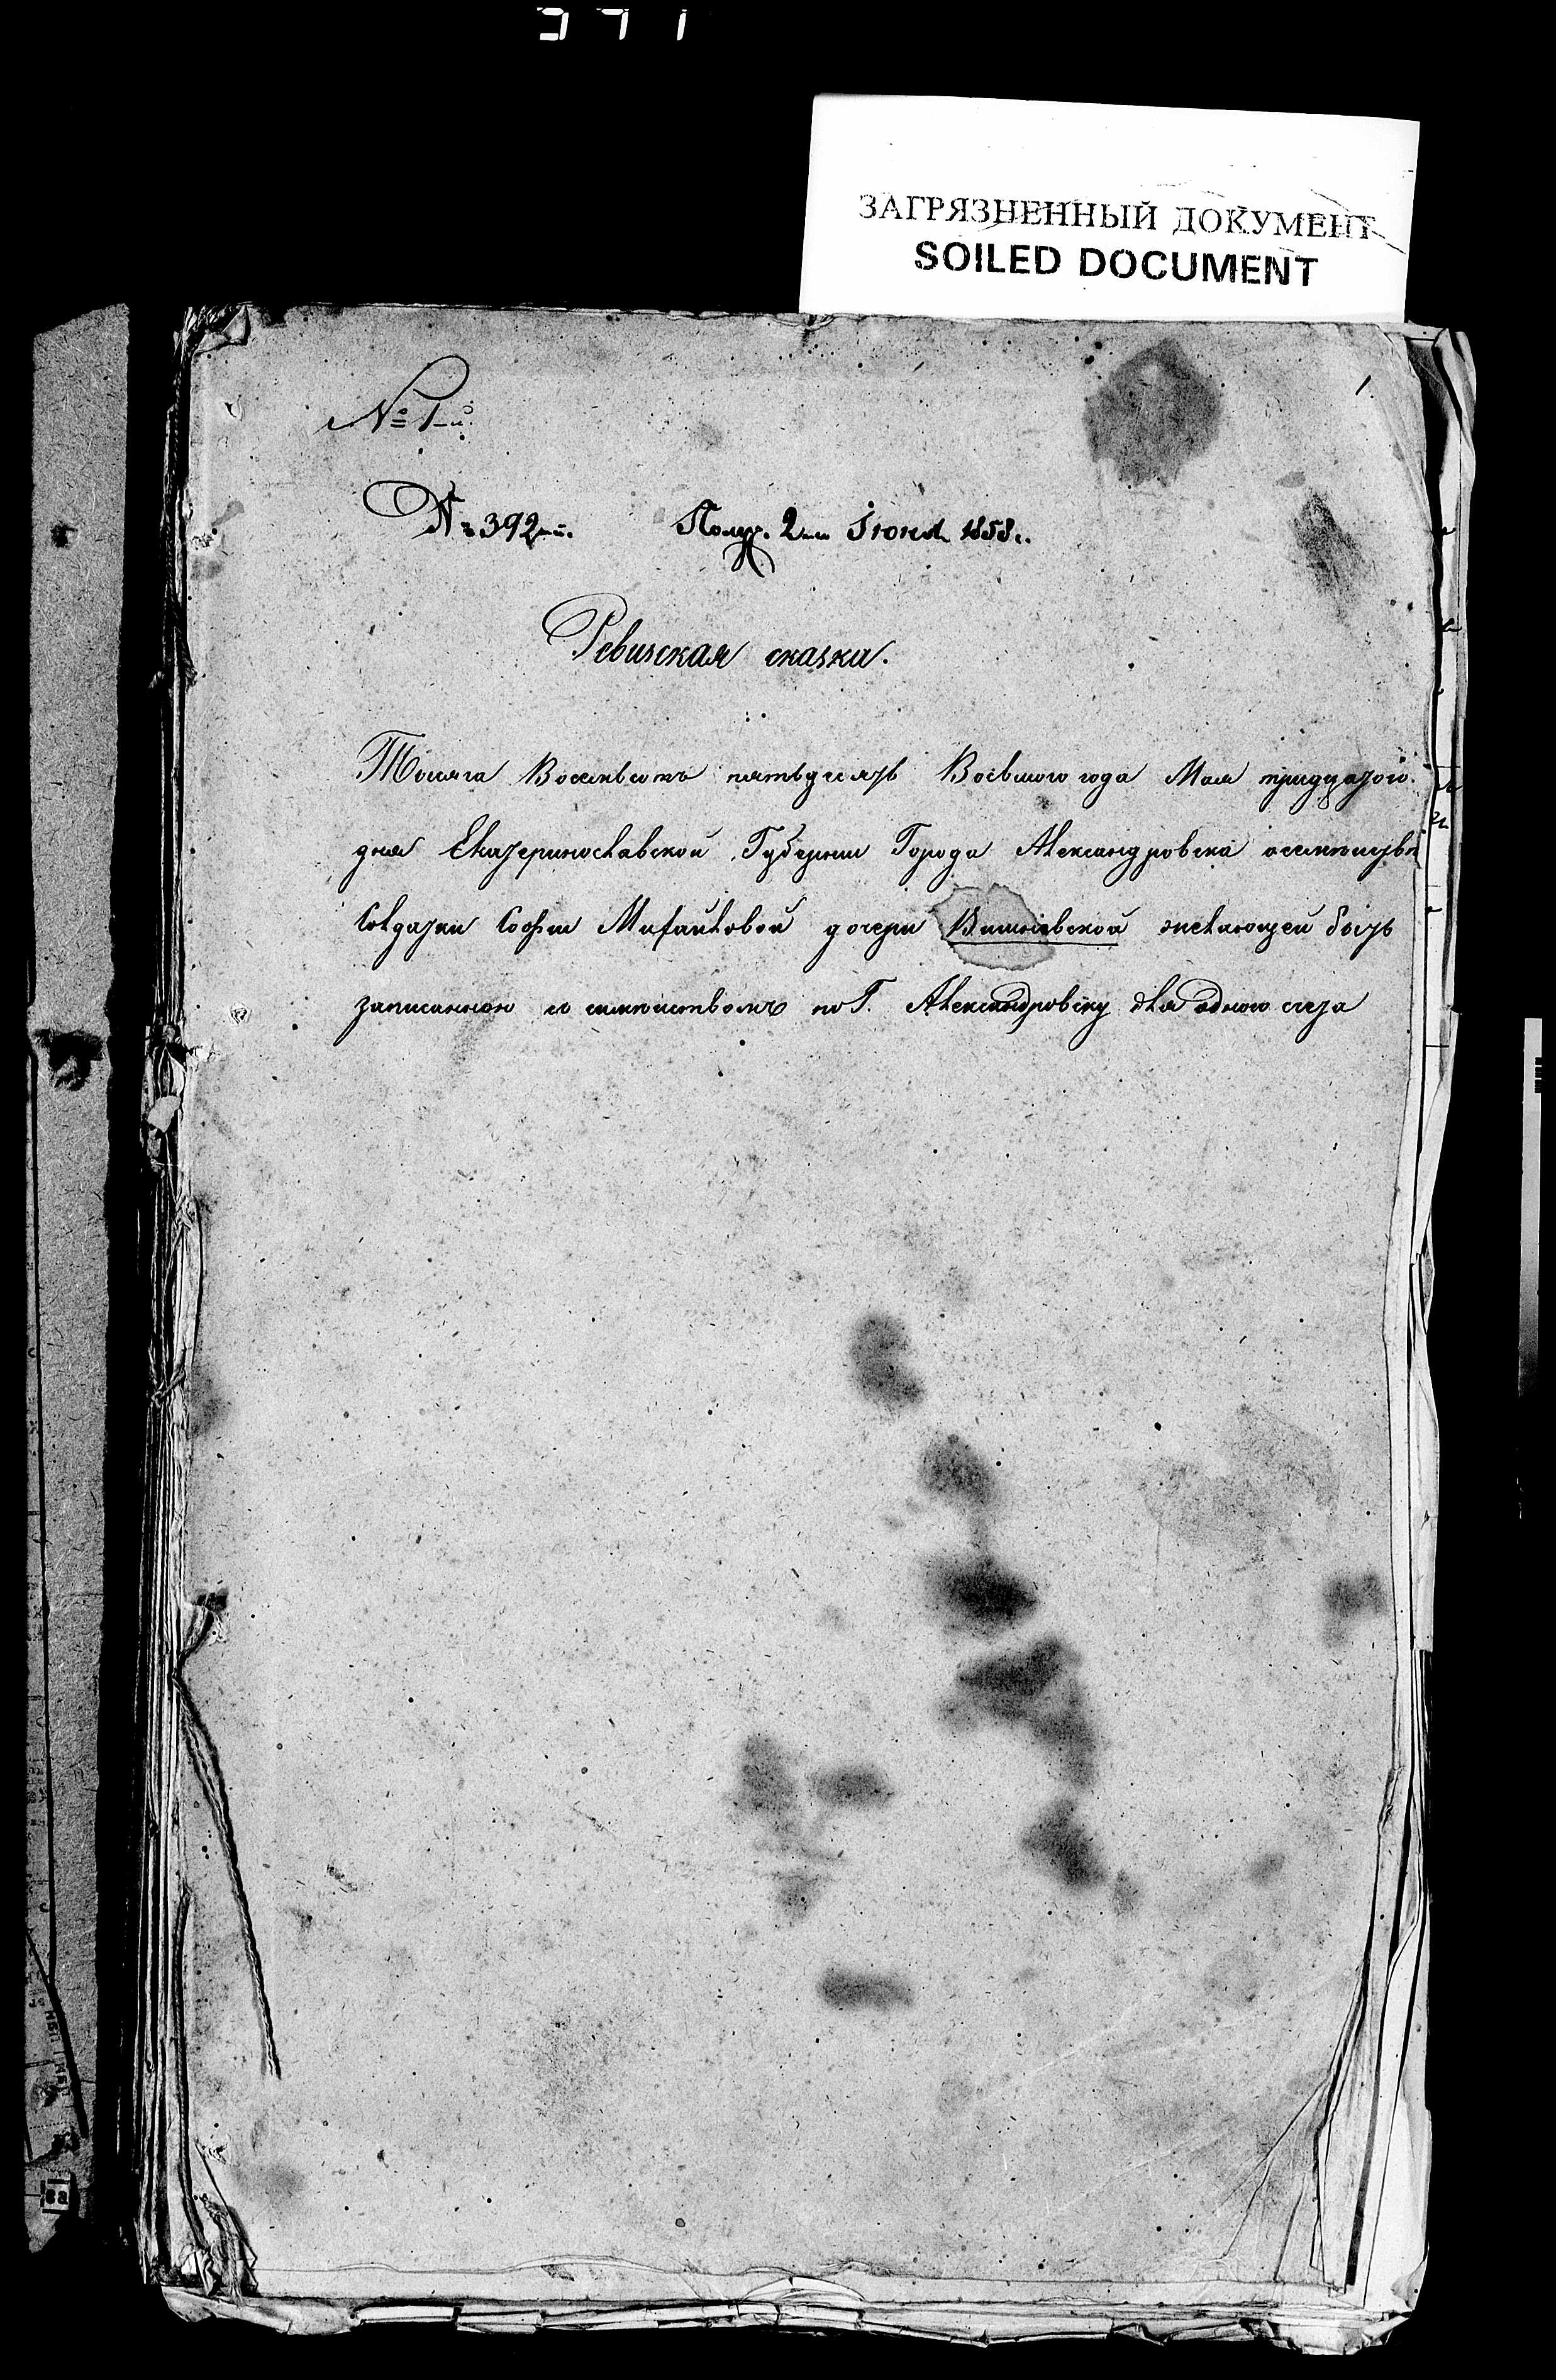 371
ЗАГРЯЗНЕННЫЙ ДОКУМЕНТ
SOILED DOCUMENT
1
№ 1-й.
№ 392-й. Получ. 2-го Іюня 1858 г.
Ревизская сказка.
Тысяча Восемьсотъ пятьдесятъ Восьмого года Мая тридцатого
дня Екатеринославской Губернии Города Александровска
Солдатки Софии Михайловой дочери Вишневской желающей быть
записанною съ семействомъ по Г. Александровску для одного счета